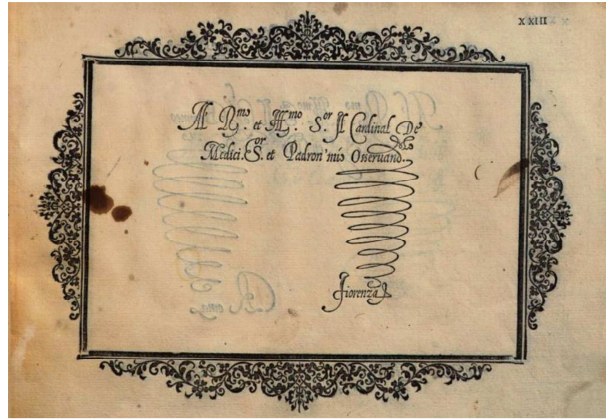 XXIII
Al R.mo et Ill.mo S.or Il Cardinal De
Medici. S.or et Padron' mio Oseruand.mo
Fiorenza